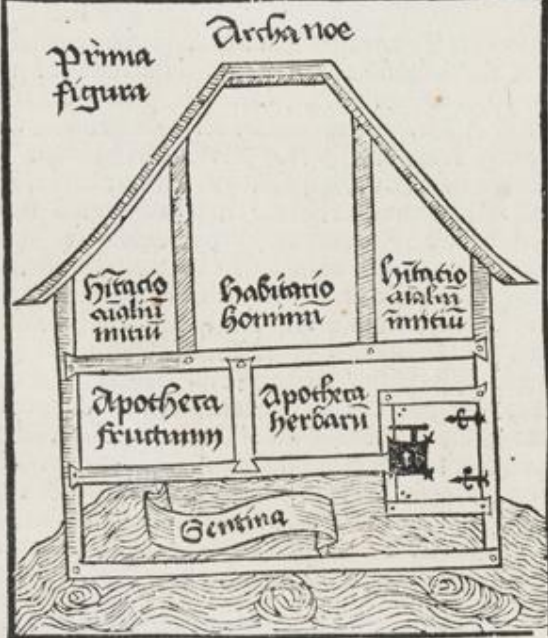 Archa noe
Prima
figura
hītatio
aīaliū
mitiū
habitatio
hominū
hītatio
aialiū
īmitiū
Apotheca
fructuum
Apotheca
herbarū
Sentina